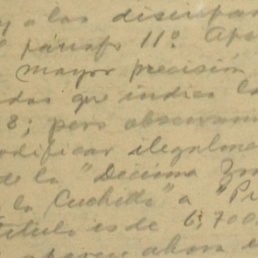 y a las discrepan
párrafo 11º. Ape
mayor precisión
das que indica la
8; pero observam
odificar ilegalme
de la "Décima Zon
la Cuchilla" a "Pi
título es de 6,700
aparece ahora e